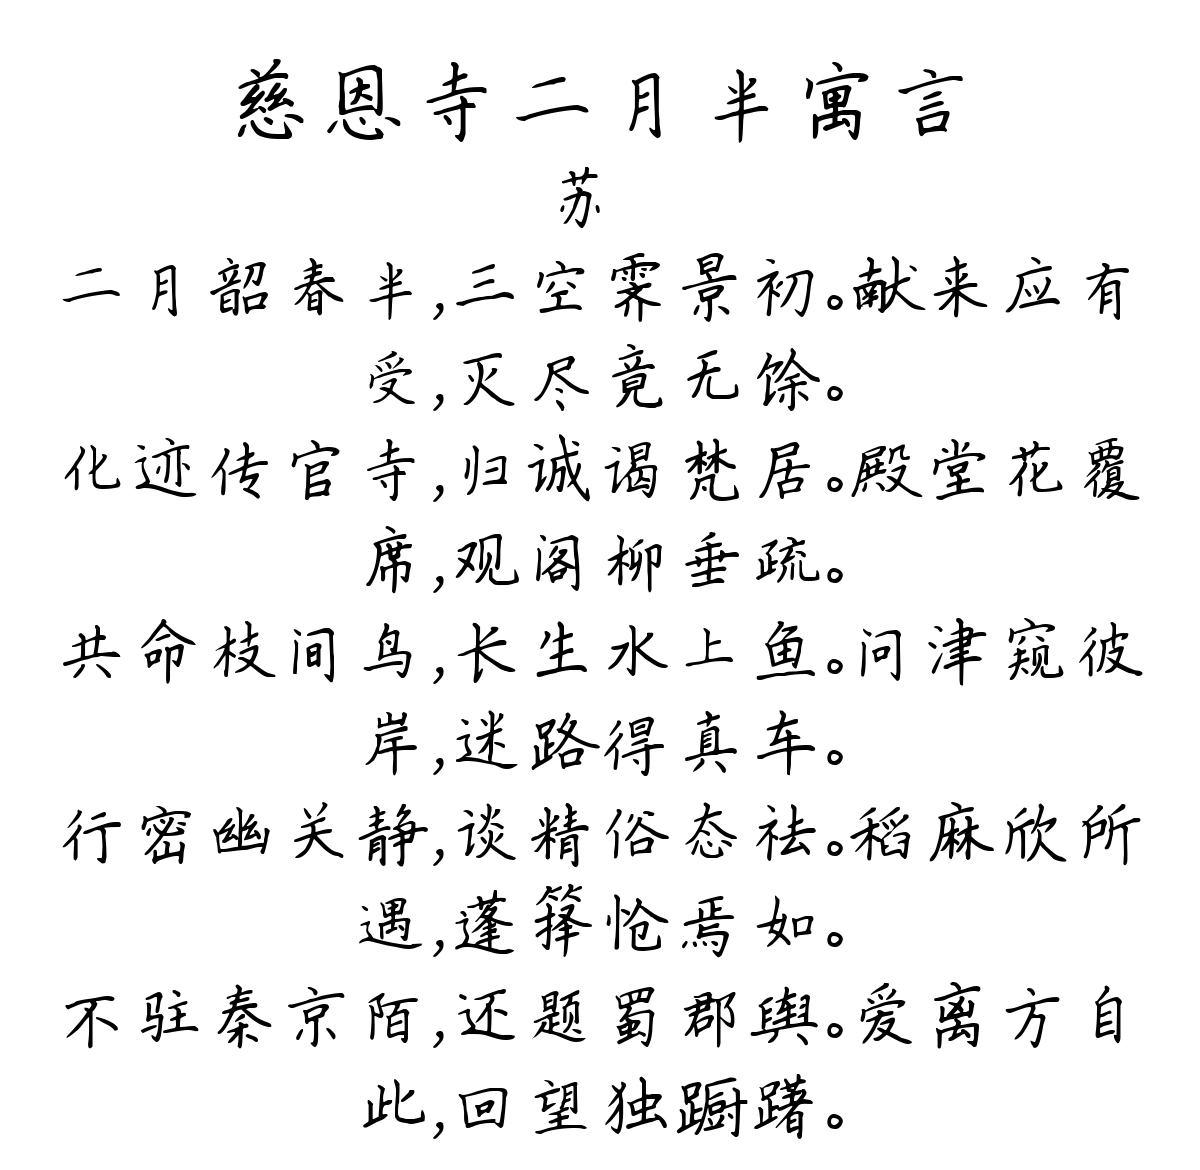 慈恩寺二月半寓言
苏
二月韶春半,三空霁景初。献来应有
受,灭尽竟无馀。
化迹传官寺,归诚谒梵居。殿堂花覆
席,观阁柳垂疏。
共命枝间鸟,长生水上鱼。问津窥彼
岸,迷路得真车。
行密幽关静,谈精俗态祛。稻麻欣所
遇,蓬箨怆焉如。
不驻秦京陌,还题蜀郡舆。爱离方自
此,回望独蹰躇。